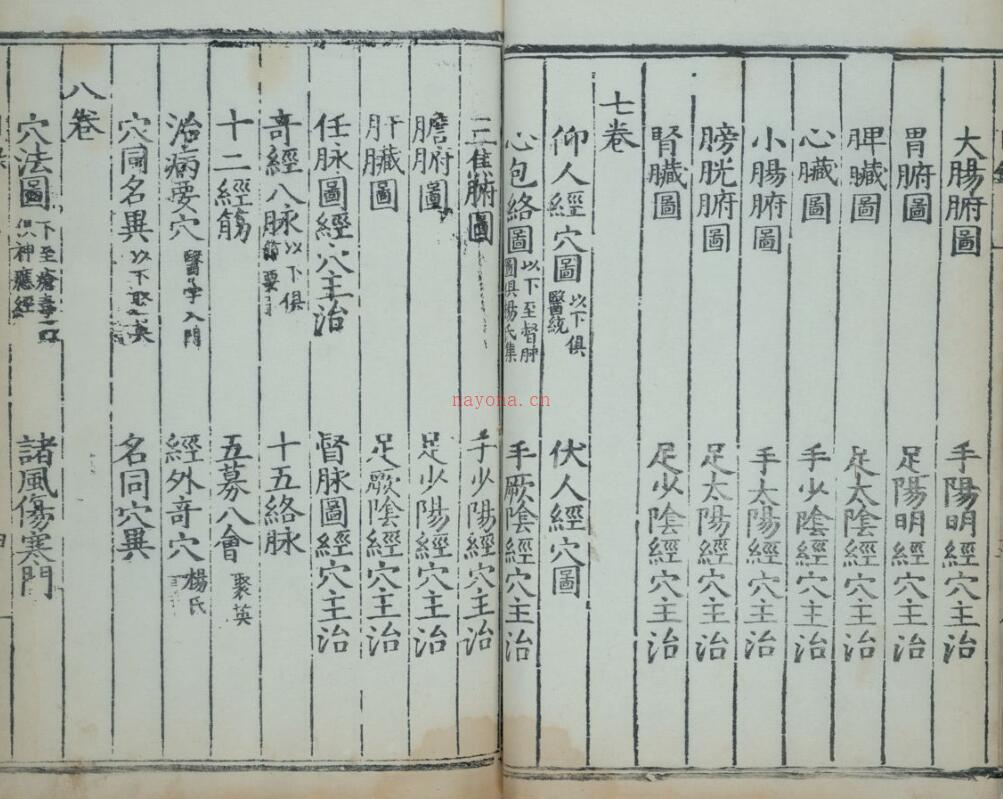 大腸腑圖 手陽明經穴主治
胃腑圖 足陽明經穴主治
脾臟圖 足太陰經穴主治
心臟圖 手少陰經穴主治
小腸腑圖 手太陽經穴主治
膀胱腑圖 足太陽經穴主治
腎臟圖 足少陰經穴主治
七卷
仰人經穴圖 以下俱醫統 伏人經穴圖
心包絡圖 以下至督脉圖俱楊氏集 手厥陰經穴主治
三焦腑圖 手少陽經穴主治
膽腑圖 足少陽經穴主治
肝臟圖 足厥陰經穴主治
任脉圖經穴主治 督脉圖經穴主治
奇經八脉 以下俱節要 十五絡脉
十二經筋 五募八會 聚英
治病要穴 醫學入門 經外奇穴 楊氏
穴同名異 以下聚英 名同穴異
八卷
穴法圖 下至瘡毒門俱神應經 諸風傷寒門
nayona.cn